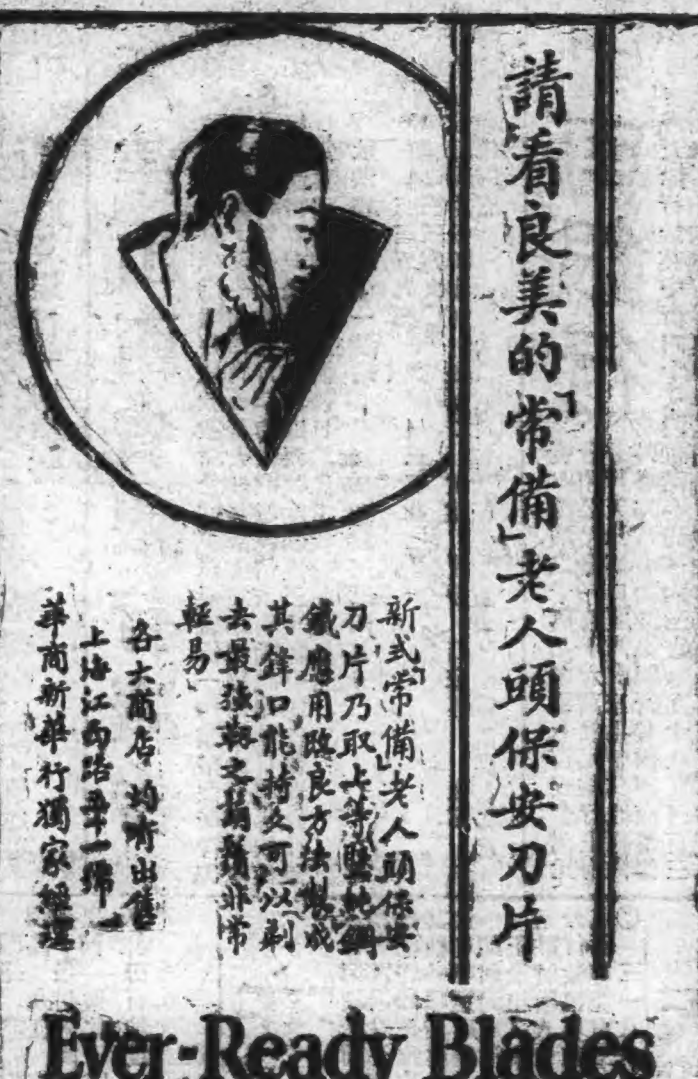 請看良美的「常備」老人頭保安刀片
新式「常備」老人頭保安
刀片乃取上等堅純鋼
鐵應用改良方法製成
其鋒口能持久可以剃
去最強韌之鬍鬚非常
輕易
各大商店均有出售
上海江西路 十一號
華商新華行獨家經理
Ever-Ready Blades